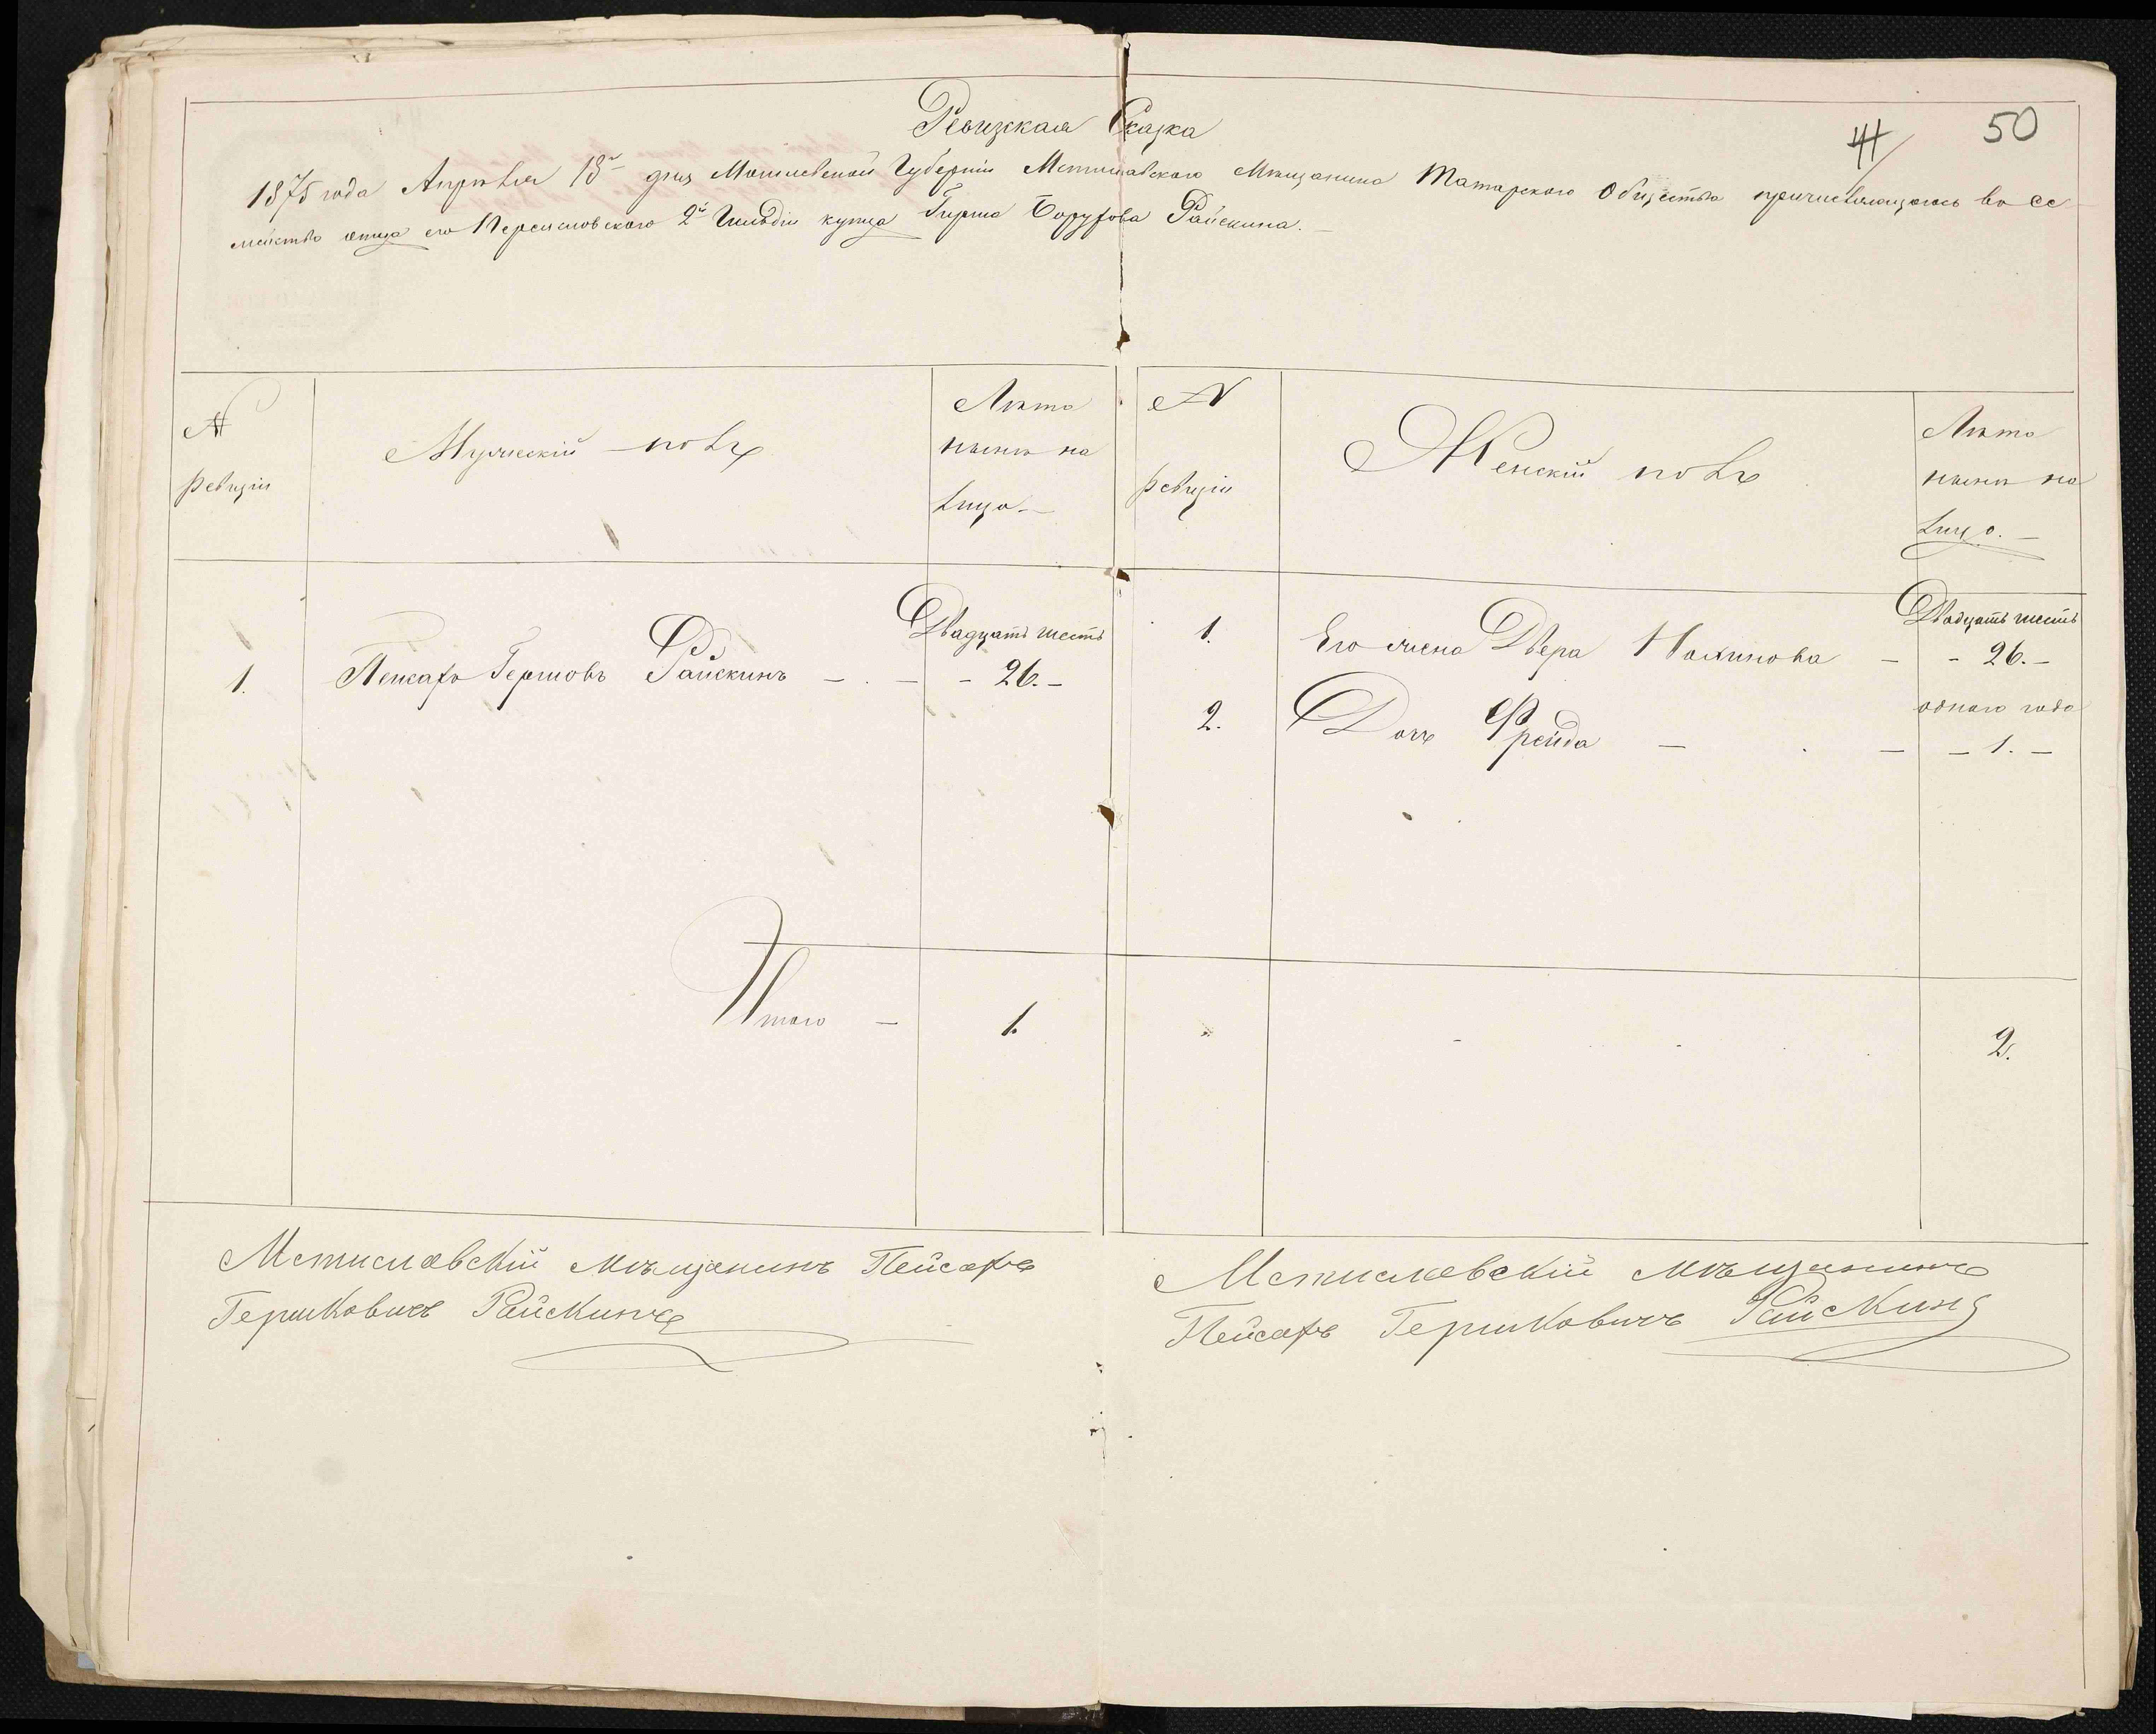 Ревизская Сказка
50
1875 года Апрѣля 18го дня Могилевской Губерніи Мстиславского Мѣщанина Татарского Общества причисляющагось въ се
мейство отца его 2й Гильдіи купца Гирша Борухова Райскина.
№ ревизіи
Мужескій полъ
Лѣта нынѣ на лицо
№ ревизіи
Женскій полъ
Лѣта нынѣ на лицо.
1. Пейсахъ Гершовъ Райскинъ Двадцать шесть 26.
1. Его жена Двера Двадцать шесть 26.
2. Дочь Фрейда одного года 1.
Итого 1. 2.
Мстиславскій мѣщанинъ Пейсахъ
Гершковичъ Райскинъ
Мстиславскій мѣщанинъ
Пейсахъ Гершковичъ Райскинъ